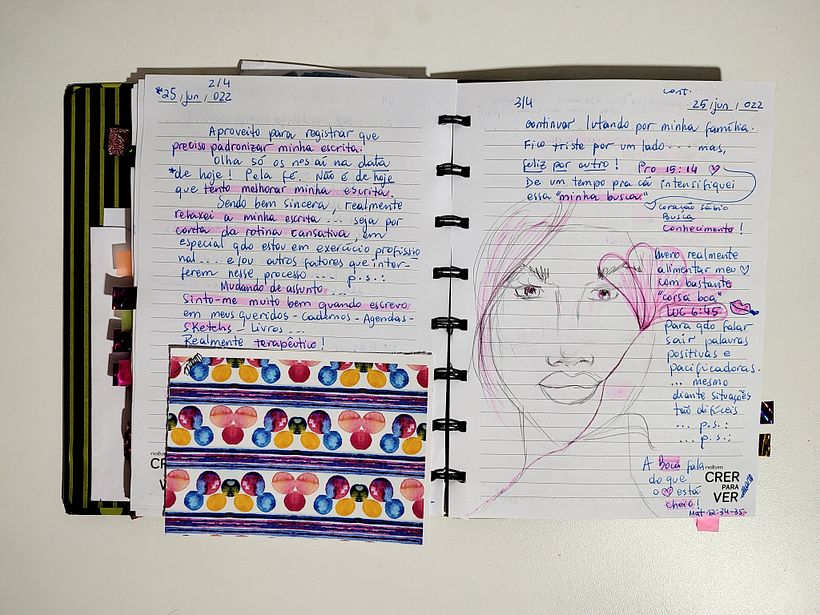 2/4
*25 / jun / 022
Aproveito para registrar que
preciso padronizar minha escrita.
Olha só os nes aí na data
*de hoje! Pela fé. Não é de hoje
que tento melhorar minha escrita.
Sendo bem sincera, realmente
relaxei a minha escrita ... seja por
conta da rotina cansativa, em
especial qdo estou em exercício profissio
nal ... e/ou outros fatores que inter-
ferem nesse processo ... p.s.:
Mudando de assunto ...
Sinto-me muito bem quando escrevo
em meus queridos - Cadernos - Agendas -
Sketchs! Livros ...
Realmente terapêutico!
CR
V
3/4
cont.
25 / jun / 022
continuar lutando por minha família.
Fico triste por um lado ... mas,
feliz por outro! Pro 15:14 ♡
De um tempo pra cá intensifiquei
essa "minha busca"
coração sábio
Busca
Conhecimento!
Quero realmente
alimentar meu ♡
com bastante
"coisa boa"
Luc 6:45
para qdo falar
sair palavras
positivas e
pacificadoras.
... mesmo
diante situações
tão difíceis
... p.s.:
... p.s.:
A Boca fala
do que
o ♡ está
cheio!
Mat 12:34-35
natura
CRER
PARA
VER